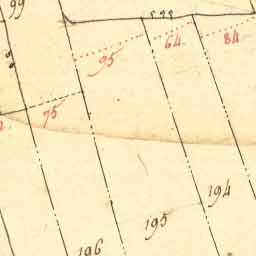 99
599
64
84
95
75
194
195
196